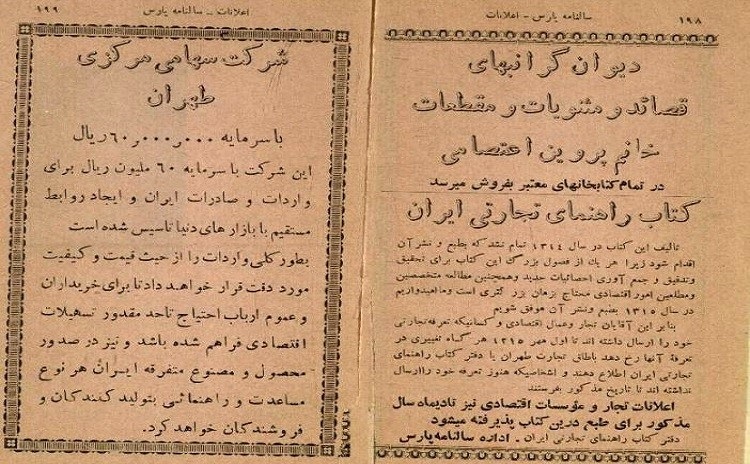 ۱۹۸
سالنامه پارس - اعلانات
دیوان گرانبهای
قصائد و مثنویات و مقطعات
خانم پروین اعتصامی
در تمام کتابخانهای معتبر بفروش میرسد
کتاب راهنمای تجارتی ایران
تالیف این کتاب در سال ۱۳۱۴ تمام نشد که بطبع و نشر آن
اقدام شود زیرا هر یك از فصول بزرگ این کتاب برای تحقیق
وتدقیق و جمع آوری احصائیات جدید وهمچنین مطالعه متخصصین
ومطلعین امور اقتصادی محتاج بزمان بزرگتری است وماامیدواریم
در سال ۱۳۱۵ بطبع ونشر آن موفق شویم
بنابر این آقایان تجار وعمال اقتصادی و کسانیکه تعرفه تجارتی
خود را ارسال داشته اند تا اول مهر ۱۳۱۵ هر گاه تغییری در
تعرفهٔ آنها رخ دهد باطاق تجارت طهران یا دفتر کتاب راهنمای
تجارتی ایران اطلاع دهند و اشخاصیکه هنوز تعرفه خود راارسال
نداشته اند تا تاریخ مذکور بفرستند
اعلانات تجار و مؤسسات اقتصادی نیز تادیماه سال
مذکور برای طبع درین کتاب پذیرفته میشود
دفتر کتاب راهنمای تجارتی ایران - اداره سالنامه پارس
اعلانات - سالنامه پارس
۱۹۹
شرکت سهامی مرکزی
طهران
با سرمایه ۶۰,۰۰۰,۰۰۰ ریال
این شرکت با سرمایه ۶۰ ملیون ریال برای
واردات و صادرات ایران و ایجاد روابط
مستقیم با بازار های دنیا تاسیس شده است
بطور کلی واردات را از حیث قیمت و کیفیت
مورد دقت قرار خواهد داد تا برای خریداران
و عموم ارباب احتیاج تاحد مقدور تسهیلات
اقتصادی فراهم شده باشد و نیز در صدور
محصول و مصنوع متفرقه ایران هر نوع
مساعدت و راهنمائی بتولید کنندگان و
فروشندکان خواهد کرد.